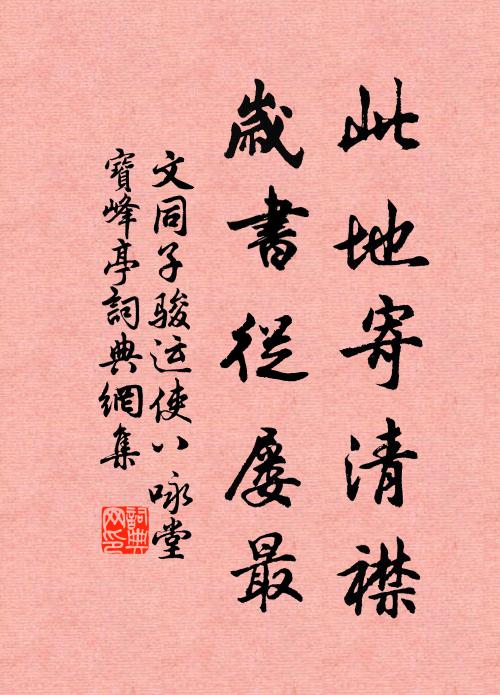 此地寄清襟
歲書從屢最
文同子駿运使八咏堂
寶峰亭詞典網集
詞典
网印